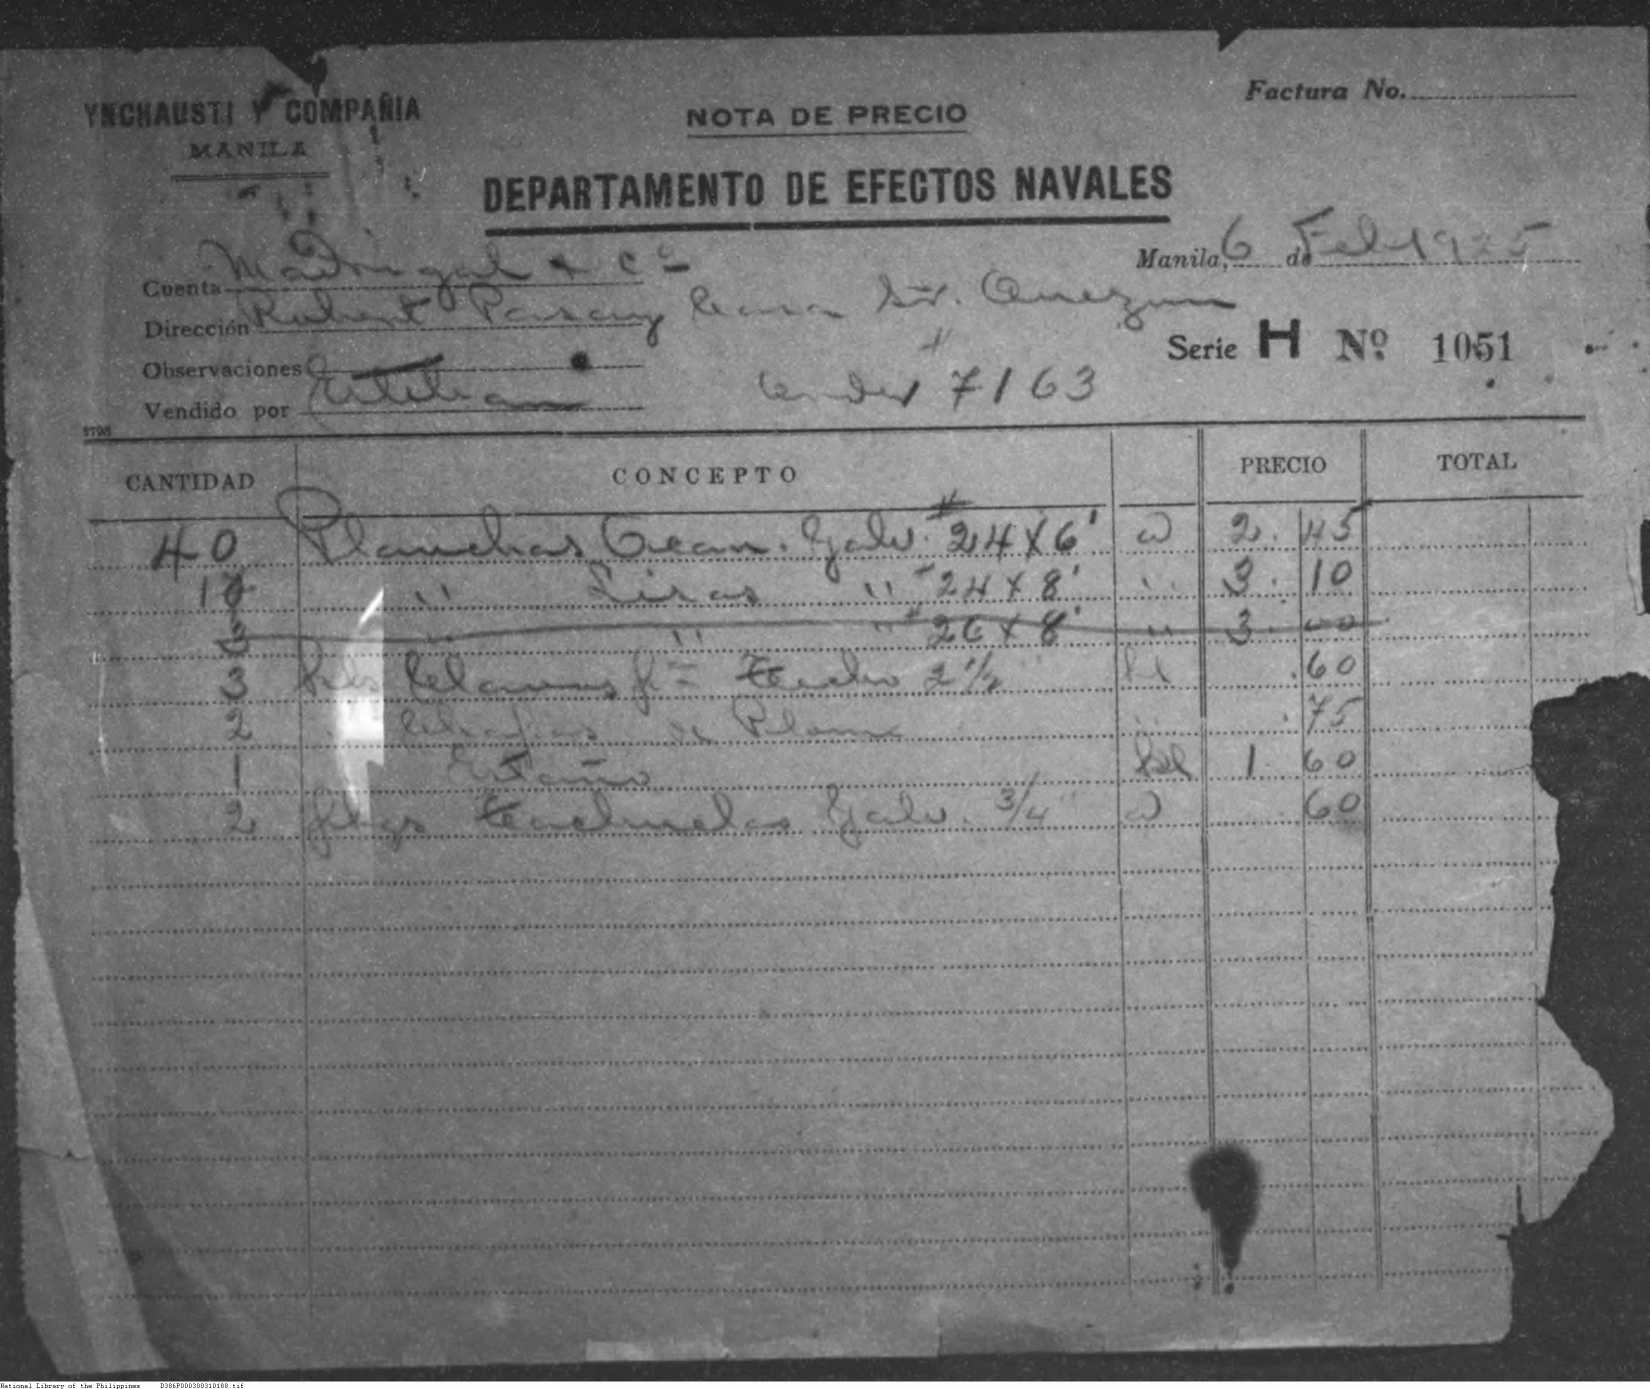 YNCHAUSTI Y COMPAÑIA
MANILA
NOTA DE PRECIO
Factura No.
DEPARTAMENTO DE EFECTOS NAVALES
Manila, 6 de Feb 1925
Cuenta Madrigal & Cº
Dirección Robert Pasay Casa Sr. Quezon
Observaciones
Serie H Nº 1051
Vendido por Esteban Order # 7163
CANTIDAD CONCEPTO PRECIO TOTAL
40 Planchas Acan. Galv. # 24 x 6' @ 2. 45
" Lisas " # 24 x 8' " 3. 10
3 " " " # 26 x 8' " 3. 00
3 Clavos techo 2 1/2 .60
2 de Plomo " .75
1 Estaño 1 60
2 Tachuelas Galv. 3/4" @ 60
National Library of the Philippines D386P000300310108.tif